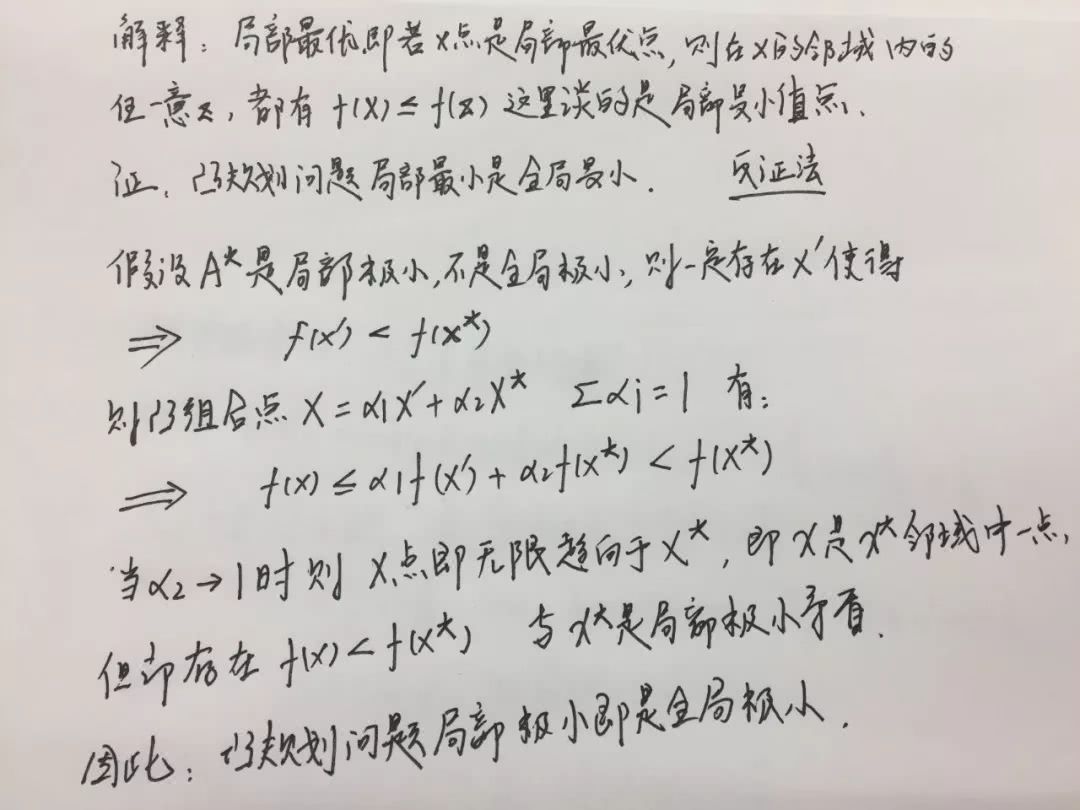 解释：局部最优即若x点是局部最优点，则在x的邻域内的
任一意z，都有 f(x) ≤ f(z) 这里谈的是局部最小值点．
证：凸规划问题局部最小是全局最小． 反证法
假设A*是局部极小，不是全局极小，则一定存在x′使得
⇒ f(x′) < f(x*)
则凸组合点 X = α₁X′ + α₂X* Σαi = 1 有：
⇒ f(x) ≤ α₁f(x′) + α₂f(x*) < f(x*)
当 α₂ → 1 时则 X点即无限趋向于X*，即 x是x*邻域中一点，
但却存在 f(x) < f(x*) 与x*是局部极小矛盾．
因此：凸规划问题局部极小即是全局极小．